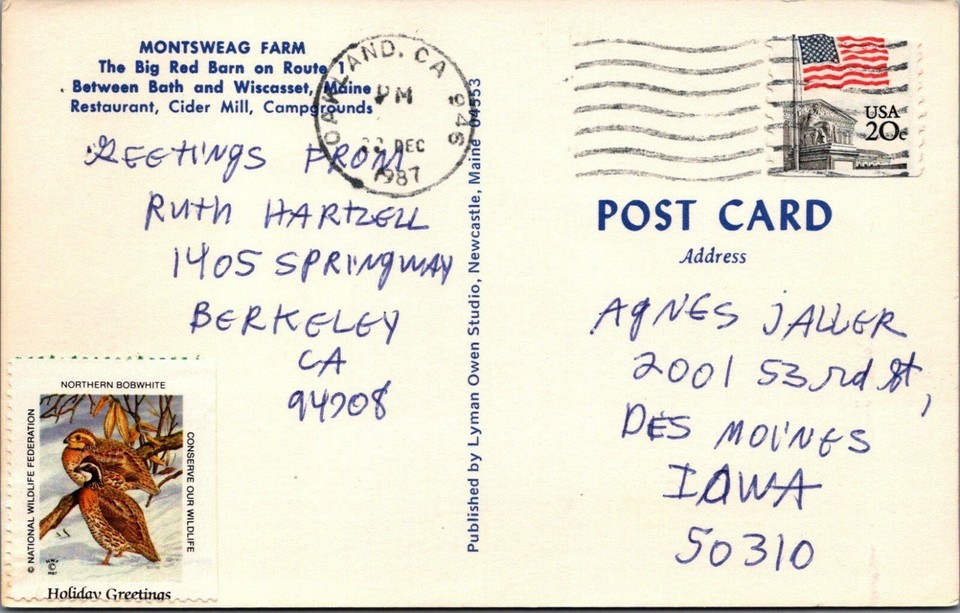 MONTSWEAG FARM
The Big Red Barn on Route 1
Between Bath and Wiscasset, Maine
Restaurant, Cider Mill, Campgrounds
OAKLAND, CA 946
PM
DEC
1987
USA
20c
GREETINGS FROM
RUTH HARTZELL
1405 SPRINGWAY
BERKELEY
CA
94708
Published by Lyman Owen Studio, Newcastle, Maine 04553
POST CARD
Address
AGNES JALLER
2001 53rd St,
DES MOINES
IOWA
50310
NORTHERN BOBWHITE
© NATIONAL WILDLIFE FEDERATION
CONSERVE OUR WILDLIFE
Holiday Greetings